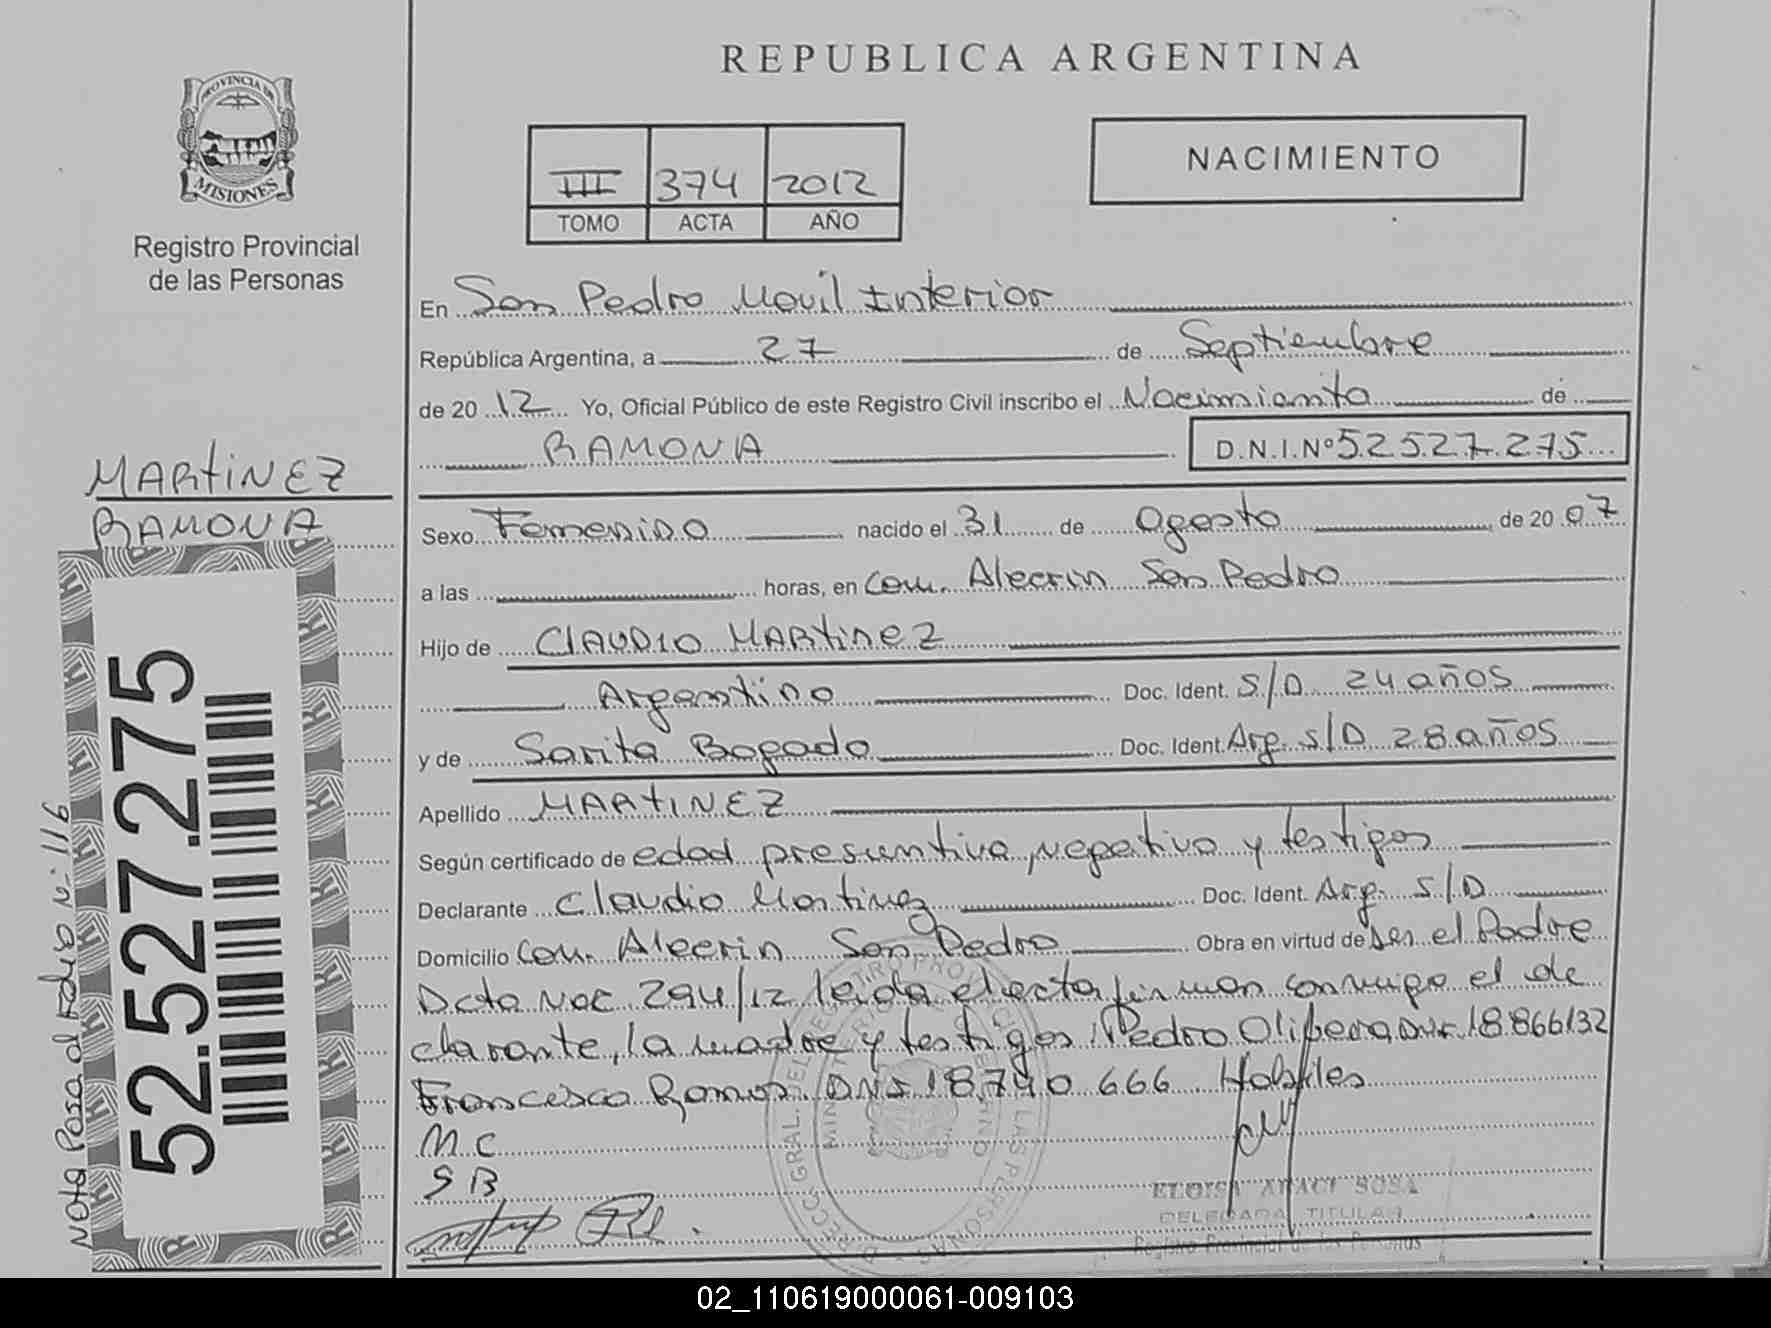 REPUBLICA ARGENTINA
PROVINCIA DE
MISIONES
Registro Provincial
de las Personas
III 374 2012
TOMO ACTA AÑO
NACIMIENTO
En San Pedro Movil Interior
República Argentina, a 27 de Septiembre
de 2012 Yo, Oficial Público de este Registro Civil inscribo el Nacimiento de
RAMONA D.N.I.Nº 52.527.275
MARTINEZ
RAMONA
Sexo Femenino nacido el 31 de Agosto de 2007
a las horas, en Com. Alecrin San Pedro
Hijo de CLAUDIO MARTINEZ
Argentino Doc. Ident. S/D 24 años
y de Sarita Bogado Doc. Ident. Arg. S/D 28 años
Apellido MARTINEZ
Según certificado de edad presuntiva, negativa y testigos
Declarante Claudio Martinez Doc. Ident. Arg. S/D
Domicilio Com. Alecrin San Pedro Obra en virtud de ser el Padre
Dcto Nac 294/12 leida el acta firman conmigo el de
clarante, la madre y testigos Pedro Olivera DNI 18.866132
Francisco Ramos DNI 18.740.666 Habiles
M C
S B
ELOISA ARACI SOSA
DELEGADA TITULAR
Registro Provincial de las Personas
52.527.275
Nota Pasa al Folio Nº 116
02_110619000061-009103